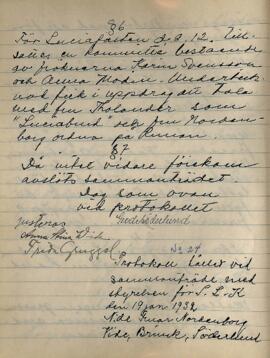 §6
För Luciafesten d. 12. till-
sattes en kommitté bestående
av fröknarna Karin Svensson
och Anna Modin. Undertecknad fick i uppdrag att tala
med frk Tholander som
"Luciabrud" och frn Norden-
borg ordna
§7
Då intet vidare förekom
avslöts sammanträdet.
Dag som ovan
vid protokollet
Justeras
No 27
Protokoll fört vid
sammanträde med
styrelsen för S. L. K
den 19 jan 1932
Nordenborg
Söderlund